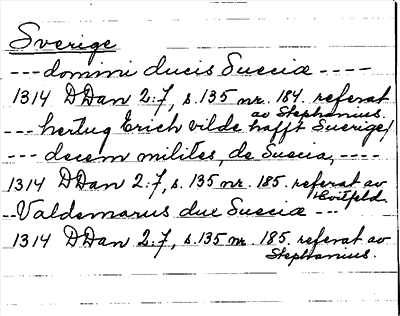 Sverige
--- domini ducis Suecia ----
1314 DDan 2:7, s. 135 nr. 184. referat
av Stephanius.
--- hertug Erich vilde hafft Sverige/
--- decem milites, de Suecia, ----
1314 DDan 2:7, s. 135 nr. 185. referat av
Hvitfeld.
-- Valdemarus dux Sueciæ ---
1314 DDan 2:7, s. 135 nr. 185. referat av
Stephanius.